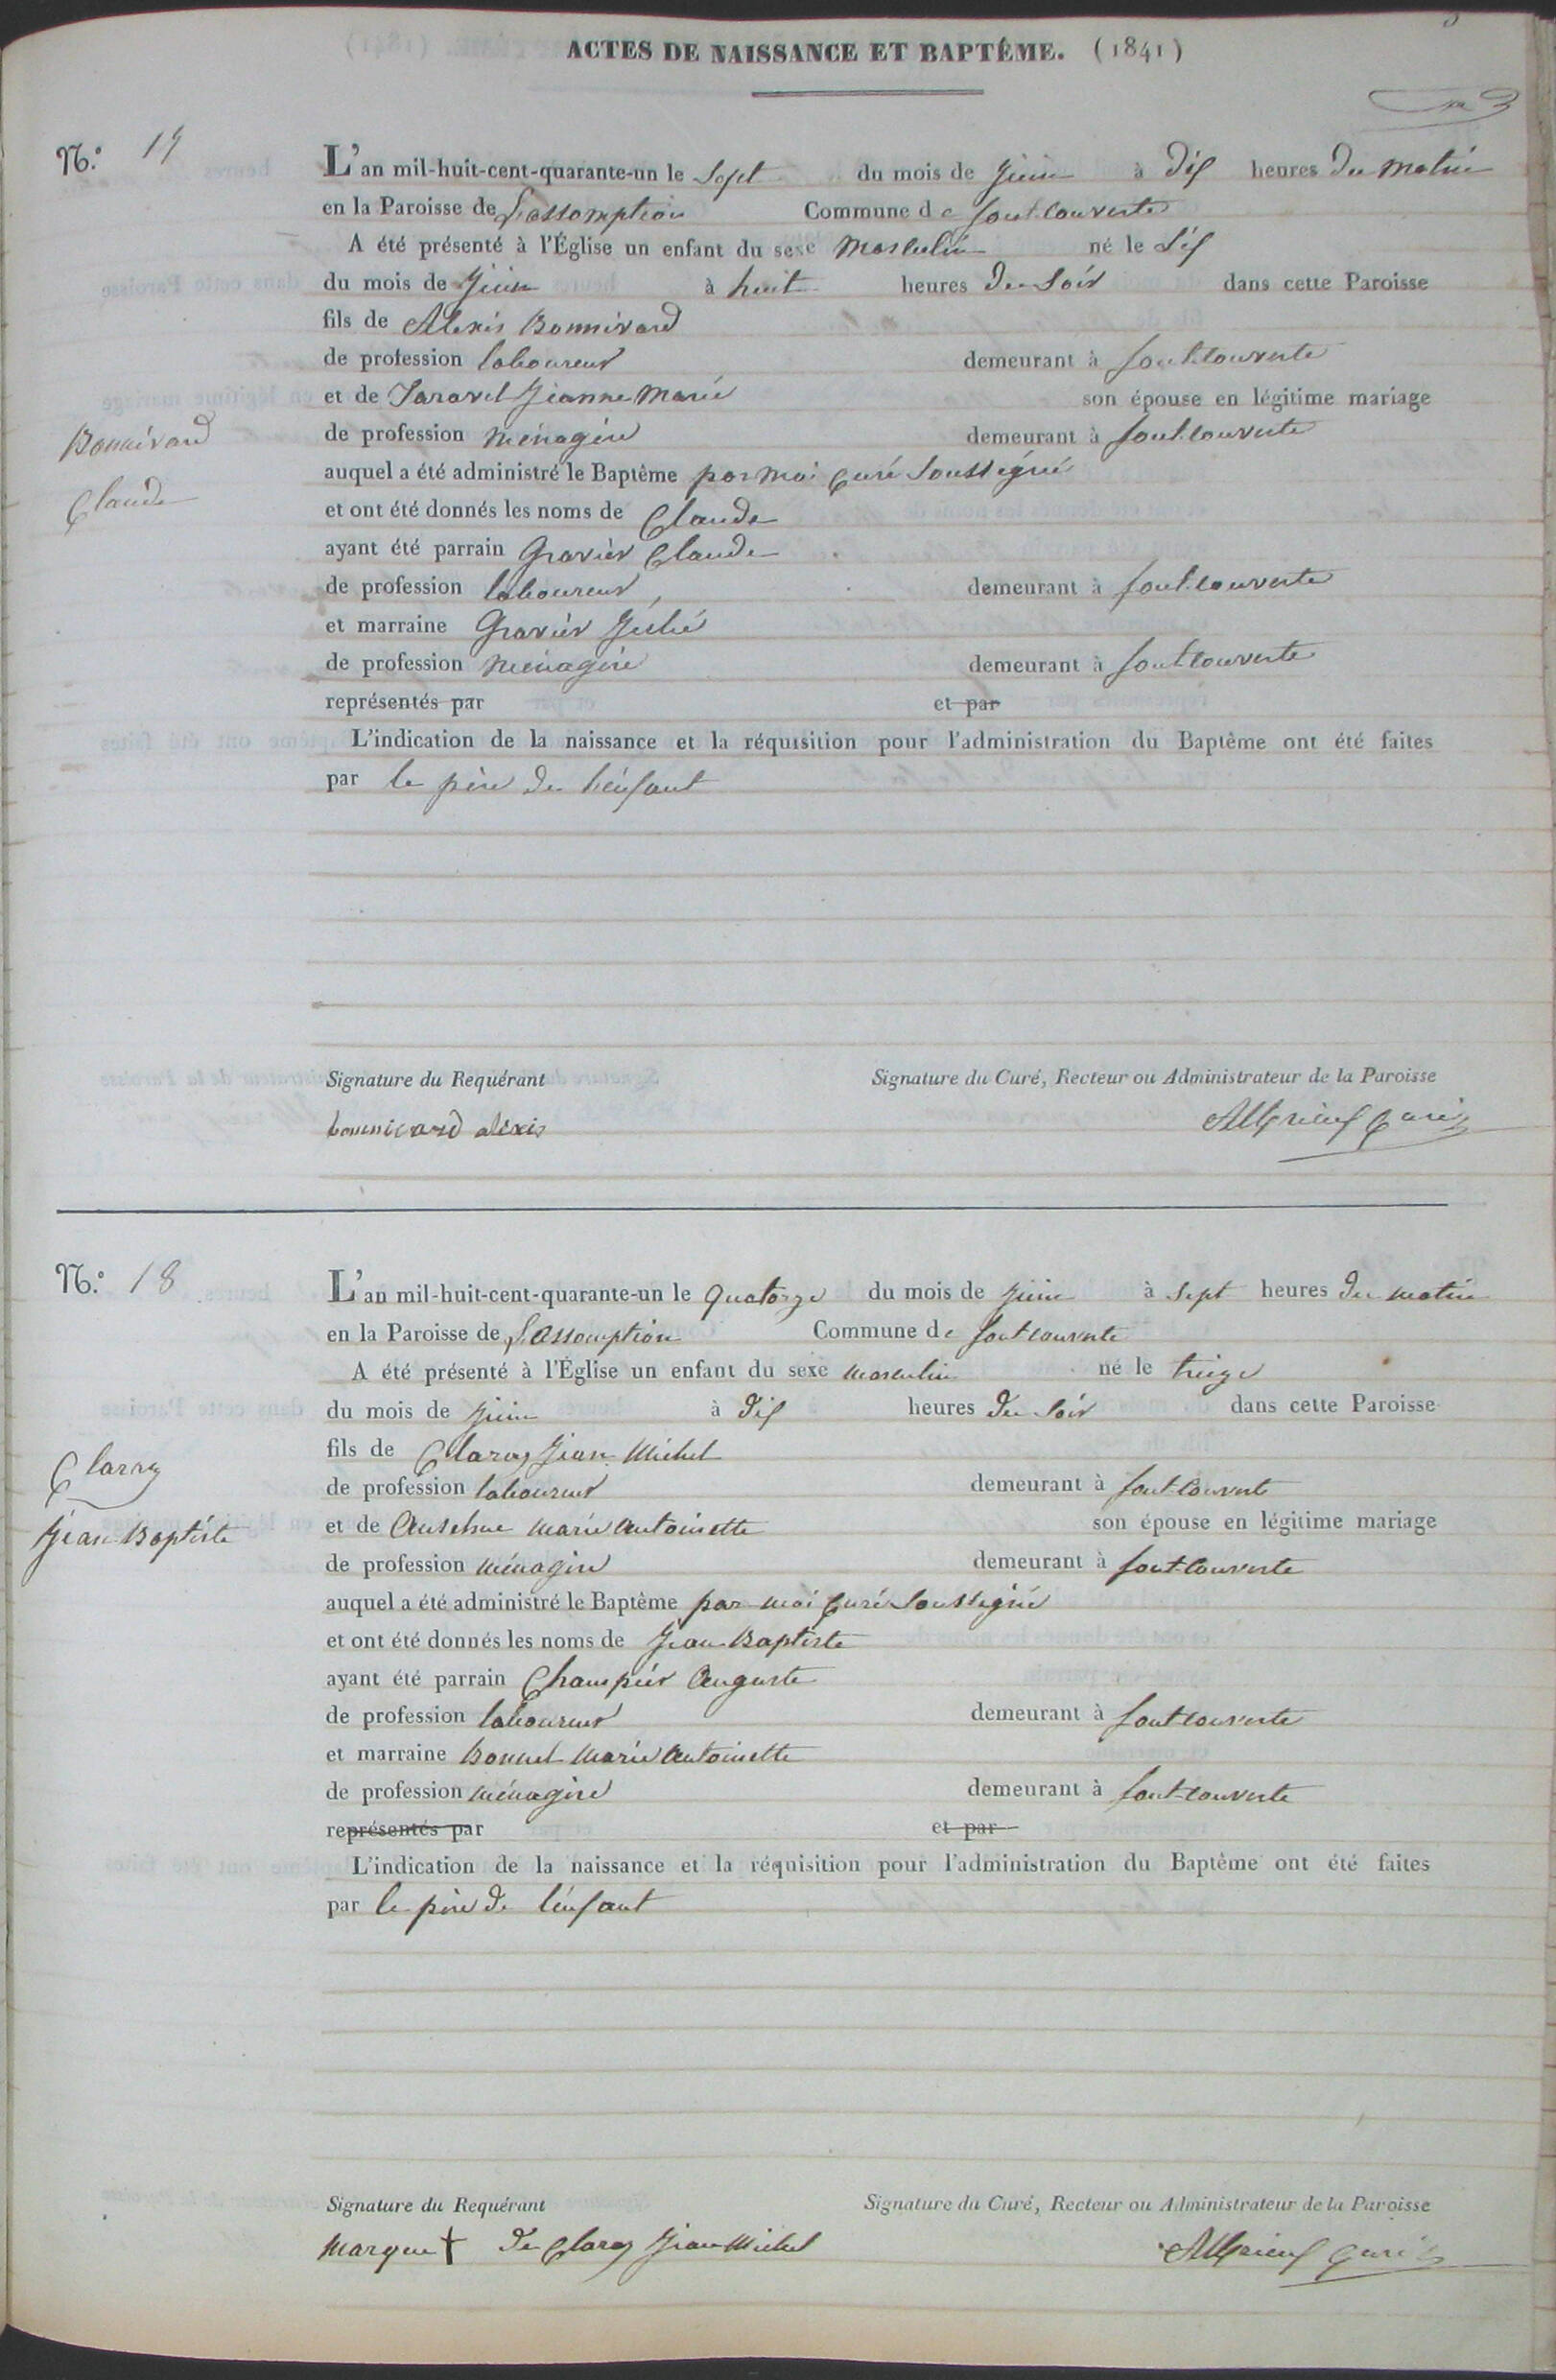 ACTES DE NAISSANCE ET BAPTÊME. (1841)
N.o 17
L'an mil-huit-cent-quarante-un le Sept du mois de Juin à dix heures du matin
en la Paroisse de L'assomption Commune de fontcouverte
A été présenté à l'Église un enfant du sexe masculin né le Six
du mois de Juin à huit heures du Soir dans cette Paroisse
fils de Alexis Bonnivard
de profession laboureur demeurant à fontcouverte
et de Taravel Jeanne Marie son épouse en légitime mariage
Bonnivard
de profession ménagère demeurant à fontcouverte
auquel a été administré le Baptême par moi Curé Soussigné
Claude
et ont été donnés les noms de Claude
ayant été parrain Gravier Claude
de profession laboureur, demeurant à fontcouverte
et marraine Gravier Julie
de profession ménagère demeurant à fontcouverte
représentés par et par
L'indication de la naissance et la réquisition pour l'administration du Baptême ont été faites
par le père de l'enfant
Signature du Requérant Signature du Curé, Recteur ou Administrateur de la Paroisse
bonnivard alexis Curé
N.o 18
L'an mil-huit-cent-quarante-un le quatorze du mois de Juin à Sept heures du matin
en la Paroisse de L'Assomption Commune de fontcouverte
A été présenté à l'Église un enfant du sexe masculin né le treize
du mois de Juin à dix heures du Soir dans cette Paroisse
fils de Claray Jean Michel
Claray
de profession laboureur demeurant à fontcouverte
et de Anselme Marie Antoinette son épouse en légitime mariage
Jean Baptiste
de profession ménagère demeurant à fontcouverte
auquel a été administré le Baptême par moi Curé Soussigné
et ont été donnés les noms de Jean Baptiste
ayant été parrain Champier Auguste
de profession laboureur demeurant à fontcouverte
et marraine Bonnel Marie Antoinette
de profession ménagère demeurant à fontcouverte
représentés par et par
L'indication de la naissance et la réquisition pour l'administration du Baptême ont été faites
par le père de l'enfant
Signature du Requérant Signature du Curé, Recteur ou Administrateur de la Paroisse
Marque † de Claray Jean Michel Curé